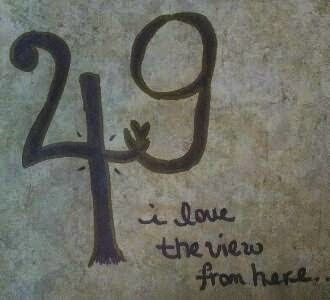 49
i love
the view
from here...